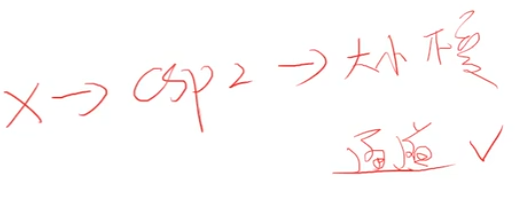 X → csp2 → 大小不变
通道 ✓